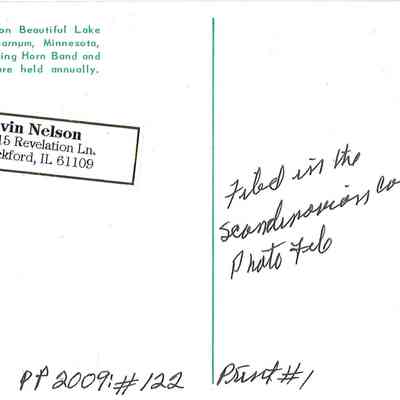 on Beautiful Lake
arnum, Minnesota,
ing Horn Band and
re held annually.
vin Nelson
15 Revelation Ln.
ckford, IL 61109
Filed in the
Scandinavian Co
Photo File
PP 2009: #122
Print #1